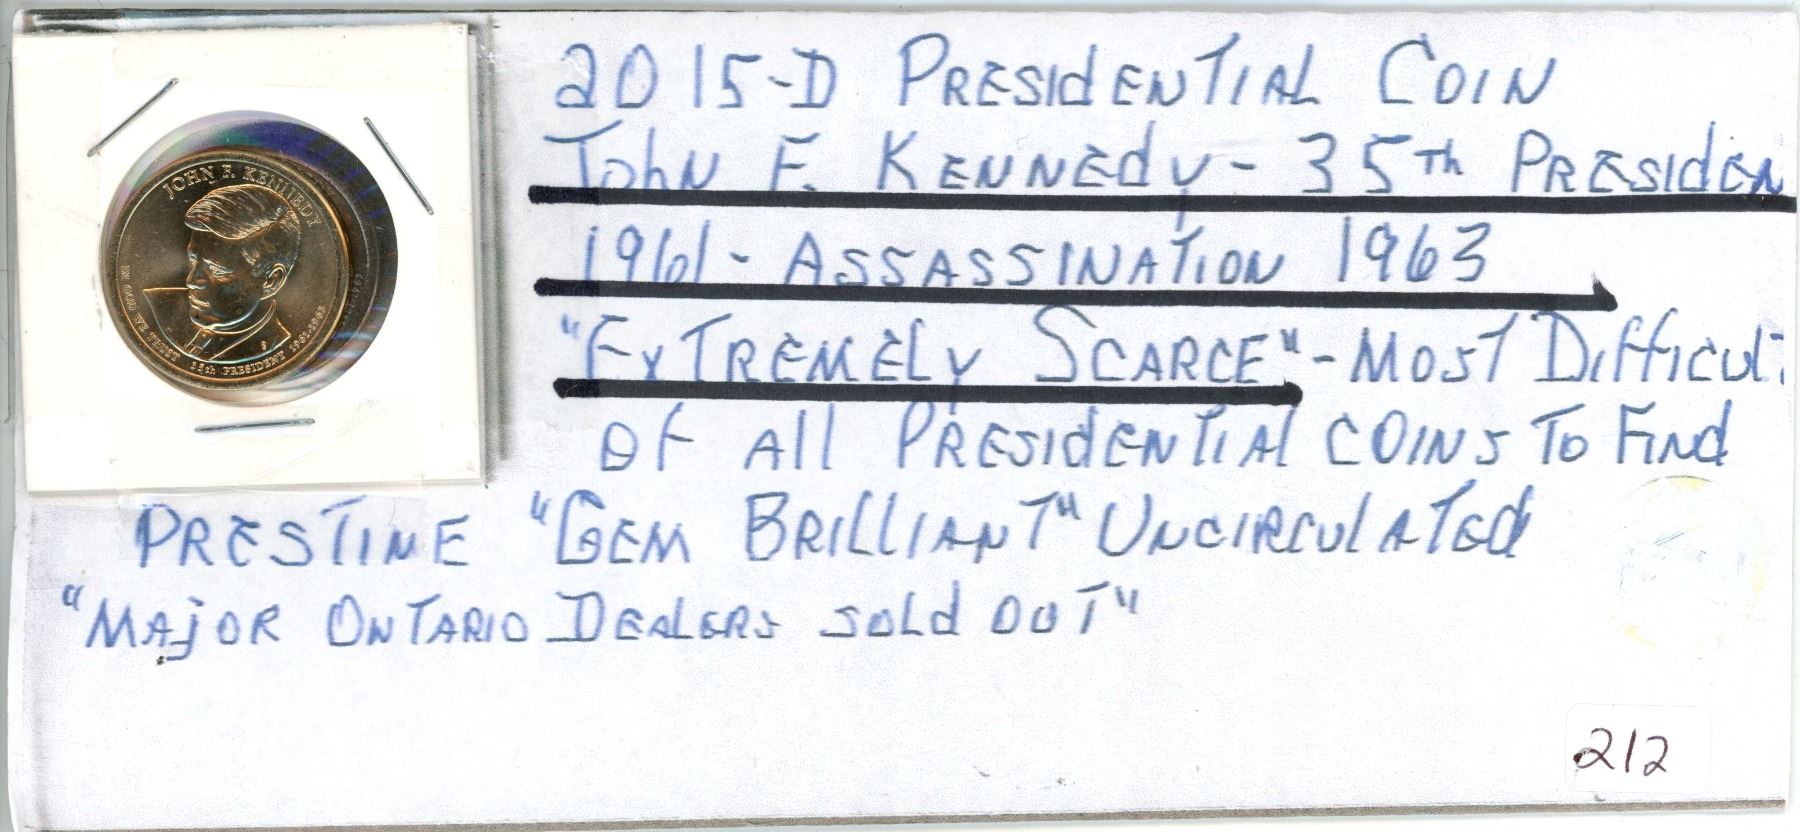 2015-D PRESIdENTIAL COIN
JohN F. KENNEdy - 35Th PRESIdEN
1961 - ASSASSINATION 1963
"ExTREMELy SCARCE" - MOST DIfficulT
OF All PRESIdENTIAl COINS TO FINd
PRESTINE "GEM BRIllIANT" UNCIRCulATEd
"MAjOR ONTARIO DEALERS SOLd OUT"
212
JOHN F. KENNEDY
IN GOD WE TRUST
35th PRESIDENT 1961-1963